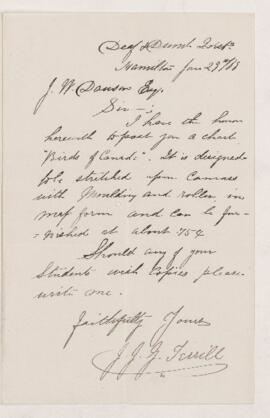 Deaf & Dumb Inst.
Hamilton Jan 29th/88
J. W. Dawson Esq.
Sir —:
I have the honor
herewith to post you a chart
"Birds of Canada". It is designed
to be stretched upon Canvass
with Moulding and roller, in
map form and can be fur-
-nished at about 75¢
Should any of your
Students wish copies please
write me.
Faithfully Yours
J. J. G. Terrill